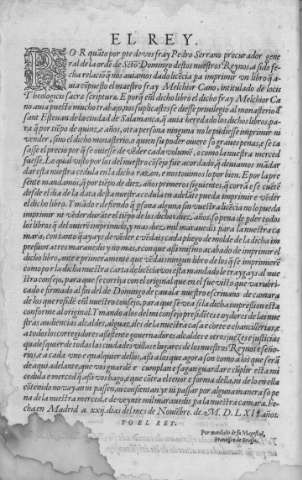 EL REY.
POR quãto por pte de vos fray Pedro Serrano procurador gene
ral de la ordẽ de Scto Domingo destos nuestros Reynos, a sido fe
cha relaciõ q̃ nos auiamos dado licẽcia pa imprimir vn libro q̃ a
uia cõpuesto el maestro fray Melchior Cano, intitulado de locis
Theologicis sacræ scripturæ. E porq̃ enl dicho libro el dicho fray Melchior Ca
no auia puesto mucho trabajo, nos suplicastes se diesse preuilegio al monasterio
sant Esteuan de la ciudad de Salamanca, q̃ auia heredado los dichos libros, pa
ra q̃ por tiẽpo de quinze años, otra persona ninguna no le pudiesse imprimir ni
vender, sino el dicho monasterio, o quien su poder ouiere so graues penas, e se ta
sasse el precio por q̃ se ouiesse de vẽder cada volumẽ, o como la nuestra merced
fuesse. Lo qual visto por los del nuestro cõsejo fue acordado, q̃ deuiamos mãdar
dar esta nuestra cedula en la dicha razon, e nos tuuimos lo por bien. E por la pre
sente mandamos, q̃ por tiẽpo de diez años primeros siguientes, q̃ corrã e se cuẽtẽ
desde el dia de la data desta nuestra cedula en adelãte pueda imprimir e vẽder
el dicho libro. E mãdo e defiendo q̃ persona alguna sin vuestra licẽcia no lo pueda
imprimir ni vẽder durãte el tiẽpo de los dichos diez años, so pena de pder todos
los libros q̃ del ouiere imprimido, y mas diez mil marauedis para la nuestra ca
mara, con tanto
impressor
dicho libro, ante e primeramente que
como por la dicha nuestra carta de licẽcia vos esta mandado le traygays al nue
stro consejo, para que se corrija con el original que en el fue visto que va rubri
cado e firmado al fin de los Domingo de çauala nuestro escriuano de camara
de los que residẽ enl nuestro consejo, para que se vea si la dicha impression esta
conforme al original. Y mando a los del mi consejo presidẽtes e oydores de las nue
stras audiencias alcaldes, alguaziles de la nuestra casa e corte e chancillerias, e
a todos los corregidores assistente gouernadores alcaldes e otros juezes e justicias
qualesquier de todas las ciudades villas e lugares de los nuestros Reynos e señor
rios, e a cada vno e qualquier dellos, assi a los que agora son como a los que serã
de aqui adelante, que vos guardẽ e cumplan e fagan guardar e cũplir esta mi
cedula e merced q̃ assi vos hago, e que cõtra el tenor e forma della, ni de lo en ella
cõtenido no vayan ni passen, ni consientan yr ni passar por alguna manera so pe
na de la nuestra merced, e de veynte mil marauedis pa la nuestra camara. Fe
cha en Madrid a. xxx. dias del mes de Nouiẽbre. de M.D.LXII. años.
YO EL REY.
Por mandado de su Magestad,
Francisco de Erasso.